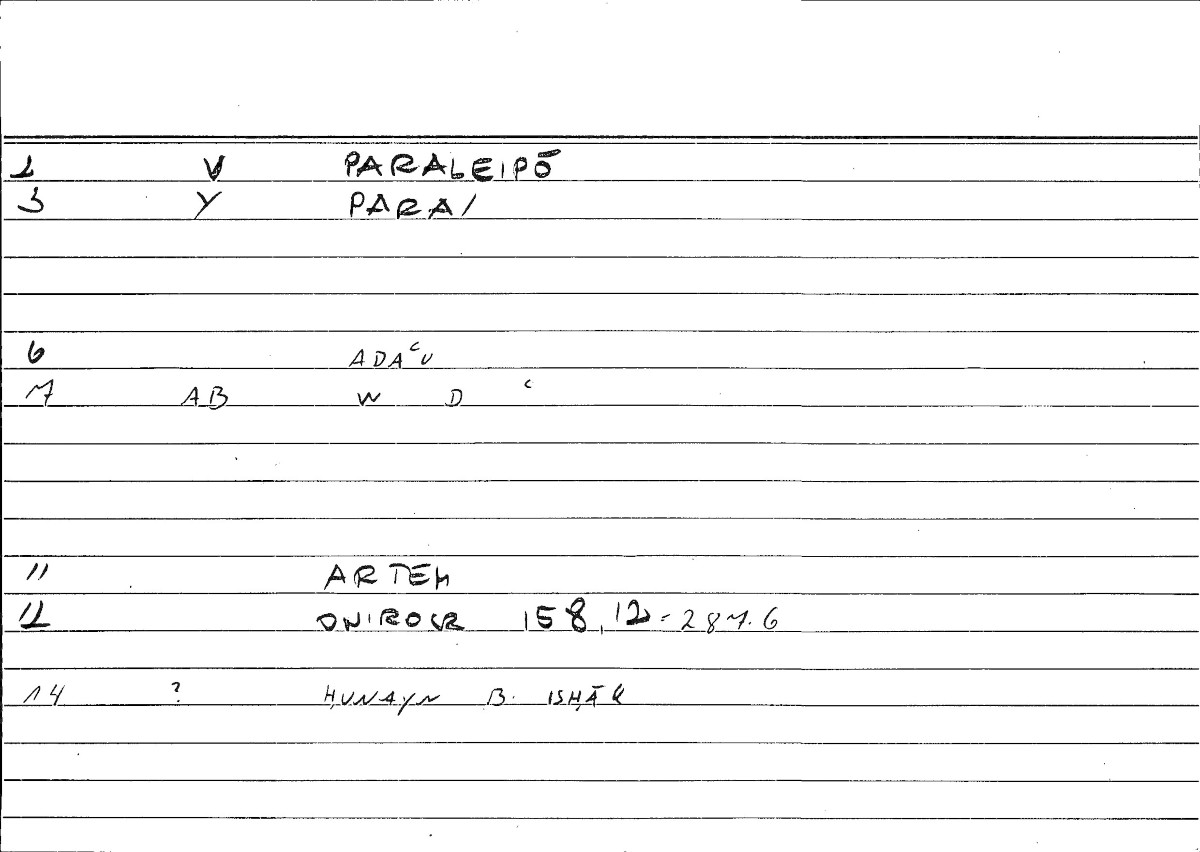 2 V PARALEIPŌ
3 Y PARA/
6 ADAʿU
7 AB W D ʿ
11 ARTEM
12 ONIROCR 158,12 = 287.6
14 ? ḤUNAYN B. ISḤĀQ